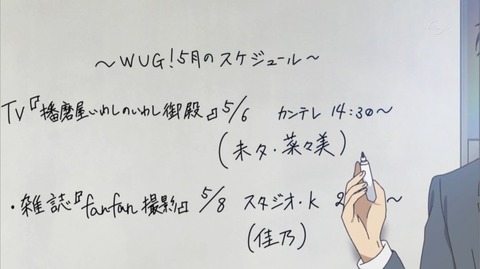 ～WUG!5月のスケジュール～
TV『播磨屋いわしのいわし御殿』5/6 カンテレ 14:30～
(未夕・菜々美)
・雑誌『fanfan撮影』5/8 スタジオ・K 2 ～
(佳乃)